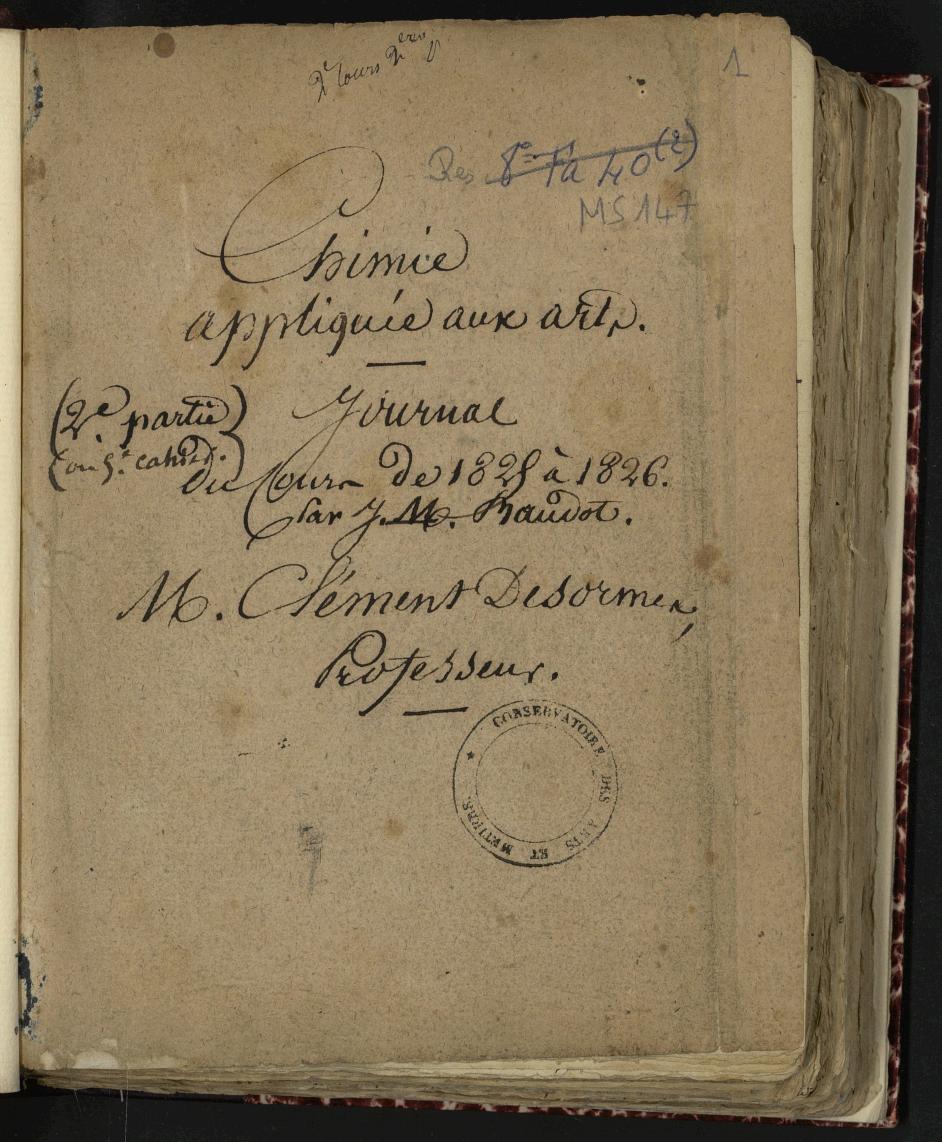 1
Res 8° Fa 40 (2)
MS 147
Chimie
appliquée aux arts.
(2e. partie)
(ou 5e. cahier.)
Journal
du Cours de 1825 à 1826.
Par J. M. Baudot.
M. Clément Desormes,
Professeur.
CONSERVATOIRE DES ARTS ET MÉTIERS.